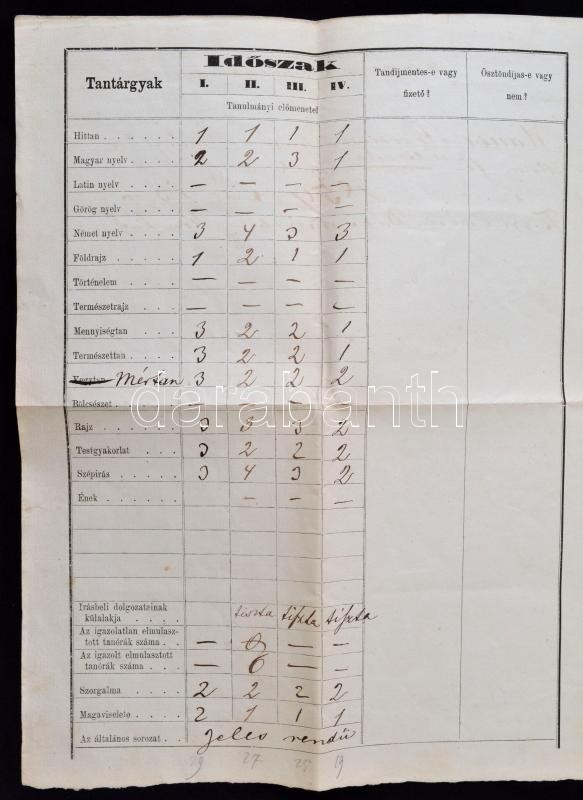 Időszak
Tantárgyak I. II. III. IV. Tandijmentes-e vagy fizető? Ösztöndijas-e vagy nem?
Tanulmányi előmenetel
Hittan . . . . . . 1 1 1 1
Magyar nyelv . . . . 2 2 3 1
Latin nyelv . . . . — — — —
Görög nyelv . . . . — — — —
Német nyelv . . . . 3 4 3 3
Földrajz . . . . 1 2 1 1
Történelem . . . . — — — —
Természetrajz . . . — — — —
Mennyiségtan . . . . 3 2 2 1
Természettan . . . . 3 2 2 1
Mértan 3 2 2 2
Bölcsészet . . . . — — —
Rajz . . . . . . 3 3 3 2
Testgyakorlat . . . 3 2 2 2
Szépirás . . . . . 3 4 3 2
Ének . . . . . . — — —
darabanth
Irásbeli dolgozatainak
külalakja . . . . tiszta tiszta tiszta
Az igazolatlan elmulasz-
tott tanórák száma . . — — —
Az igazolt elmulasztott
tanórák száma . . . — 6 — —
Szorgalma . . . . 2 2 2 2
Magaviselete . . . . 2 1 1 1
Az általános sorozat . . Jeles rendű
29 27 25 19